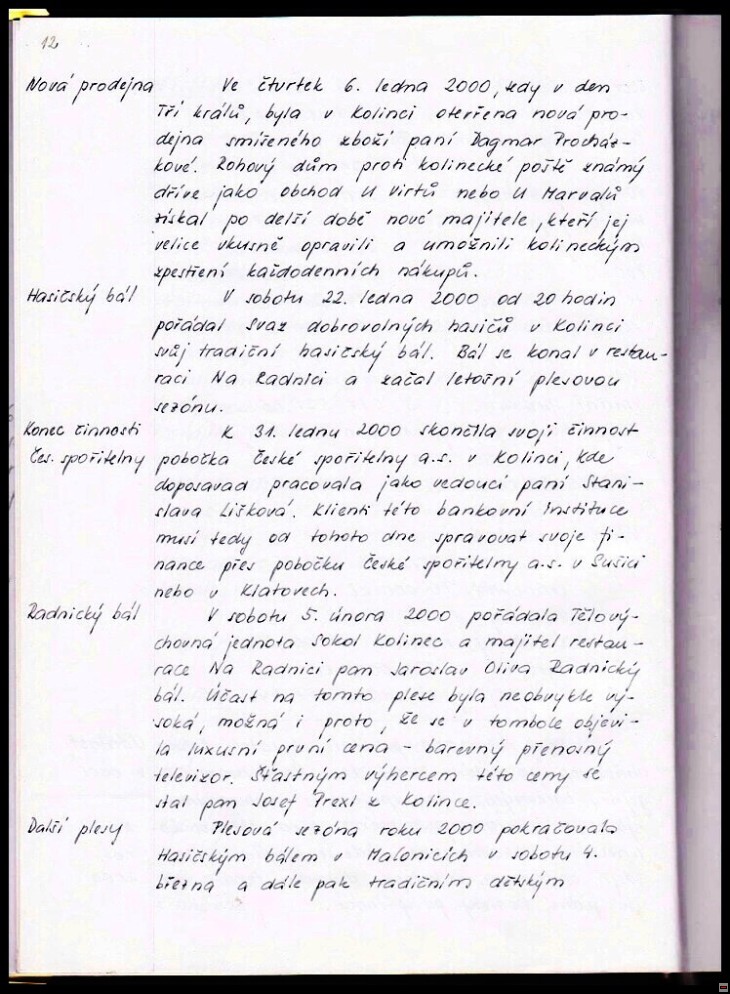 12
Nová prodejna Ve čtvrtek 6. ledna 2000, tedy v den
Tří králů, byla v Kolinci otevřena nová pro-
dejna smíšeného zboží paní Dagmar Procház-
kové. Rohový dům proti kolinecké poště známý
dříve jako obchod U Virtů nebo U Marvalů
získal po delší době nové majitele, kteří jej
velice vkusně opravili a umožnili kolineckým
zpestření každodenních nákupů.
Hasičský bál V sobotu 22. ledna 2000 od 20 hodin
pořádal Svaz dobrovolných hasičů v Kolinci
svůj tradiční hasičský bál. Bál se konal v restau-
raci Na Radnici a začal letošní plesovou
sezónu.
Konec činnosti K 31. lednu 2000 skončila svoji činnost
Čes. spořitelny pobočka České spořitelny a.s. v Kolinci, kde
doposavad pracovala jako vedoucí paní Stani-
slava Lišková. Klienti této bankovní instituce
musí tedy od tohoto dne spravovat svoje fi-
nance přes pobočku České spořitelny a.s. v Sušici
nebo v Klatovech.
Radnický bál V sobotu 5. února 2000 pořádala Tělový-
chovná jednota Sokol Kolinec a majitel restau-
race Na Radnici pan Jaroslav Oliva Radnický
bál. Účast na tomto plese byla neobvykle vy-
soká, možná i proto, že se v tombole objevi-
la luxusní první cena - barevný přenosný
televizor. Šťastným výhercem této ceny se
stal pan Josef Prexl z Kolince.
Další plesy Plesová sezóna roku 2000 pokračovala
Hasičským bálem v Malonicích v sobotu 4.
března a dále pak tradičním dětským